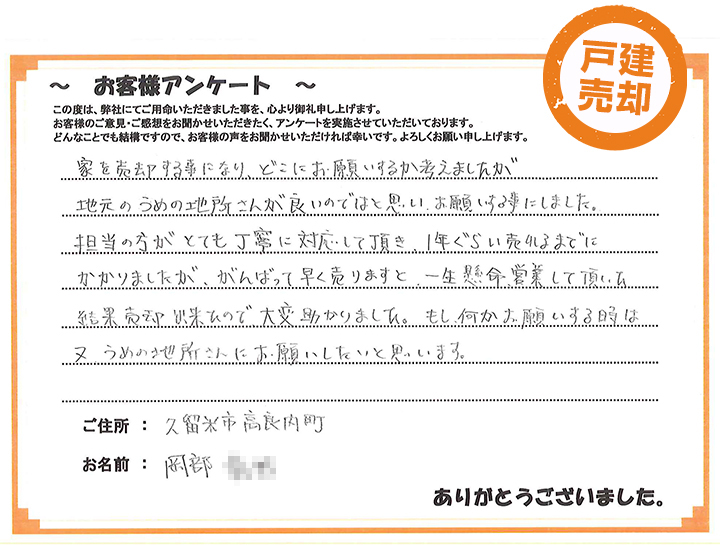 戸建
売却
～ お客様アンケート ～
この度は、弊社にてご用命いただきました事を、心より御礼申し上げます。
お客様のご意見・ご感想をお聞かせいただきたく、アンケートを実施させていただいております。
どんなことでも結構ですので、お客様の声をお聞かせいただければ幸いです。よろしくお願い申し上げます。
家を売却する事になり、どこにお願いするか考えましたが
地元のうめの地所さんが良いのではと思い、お願いする事にしました。
担当の方がとても丁寧に対応して頂き、1年ぐらい売れるまでに
かかりましたが、がんばって早く売りますと、一生懸命営業して頂いた
結果売却出来たので大変助かりました。もし何かお願いする時は
又、うめの地所さんにお願いしたいと思います。
ご住所 : 久留米市高良内町
お名前 : 岡部
ありがとうございました。